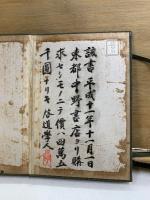 該書平成十一年十一月一日
東都中野書店ヨリ購
求セシモノニテ價八四萬五
千圓ナリキ 啓道學人